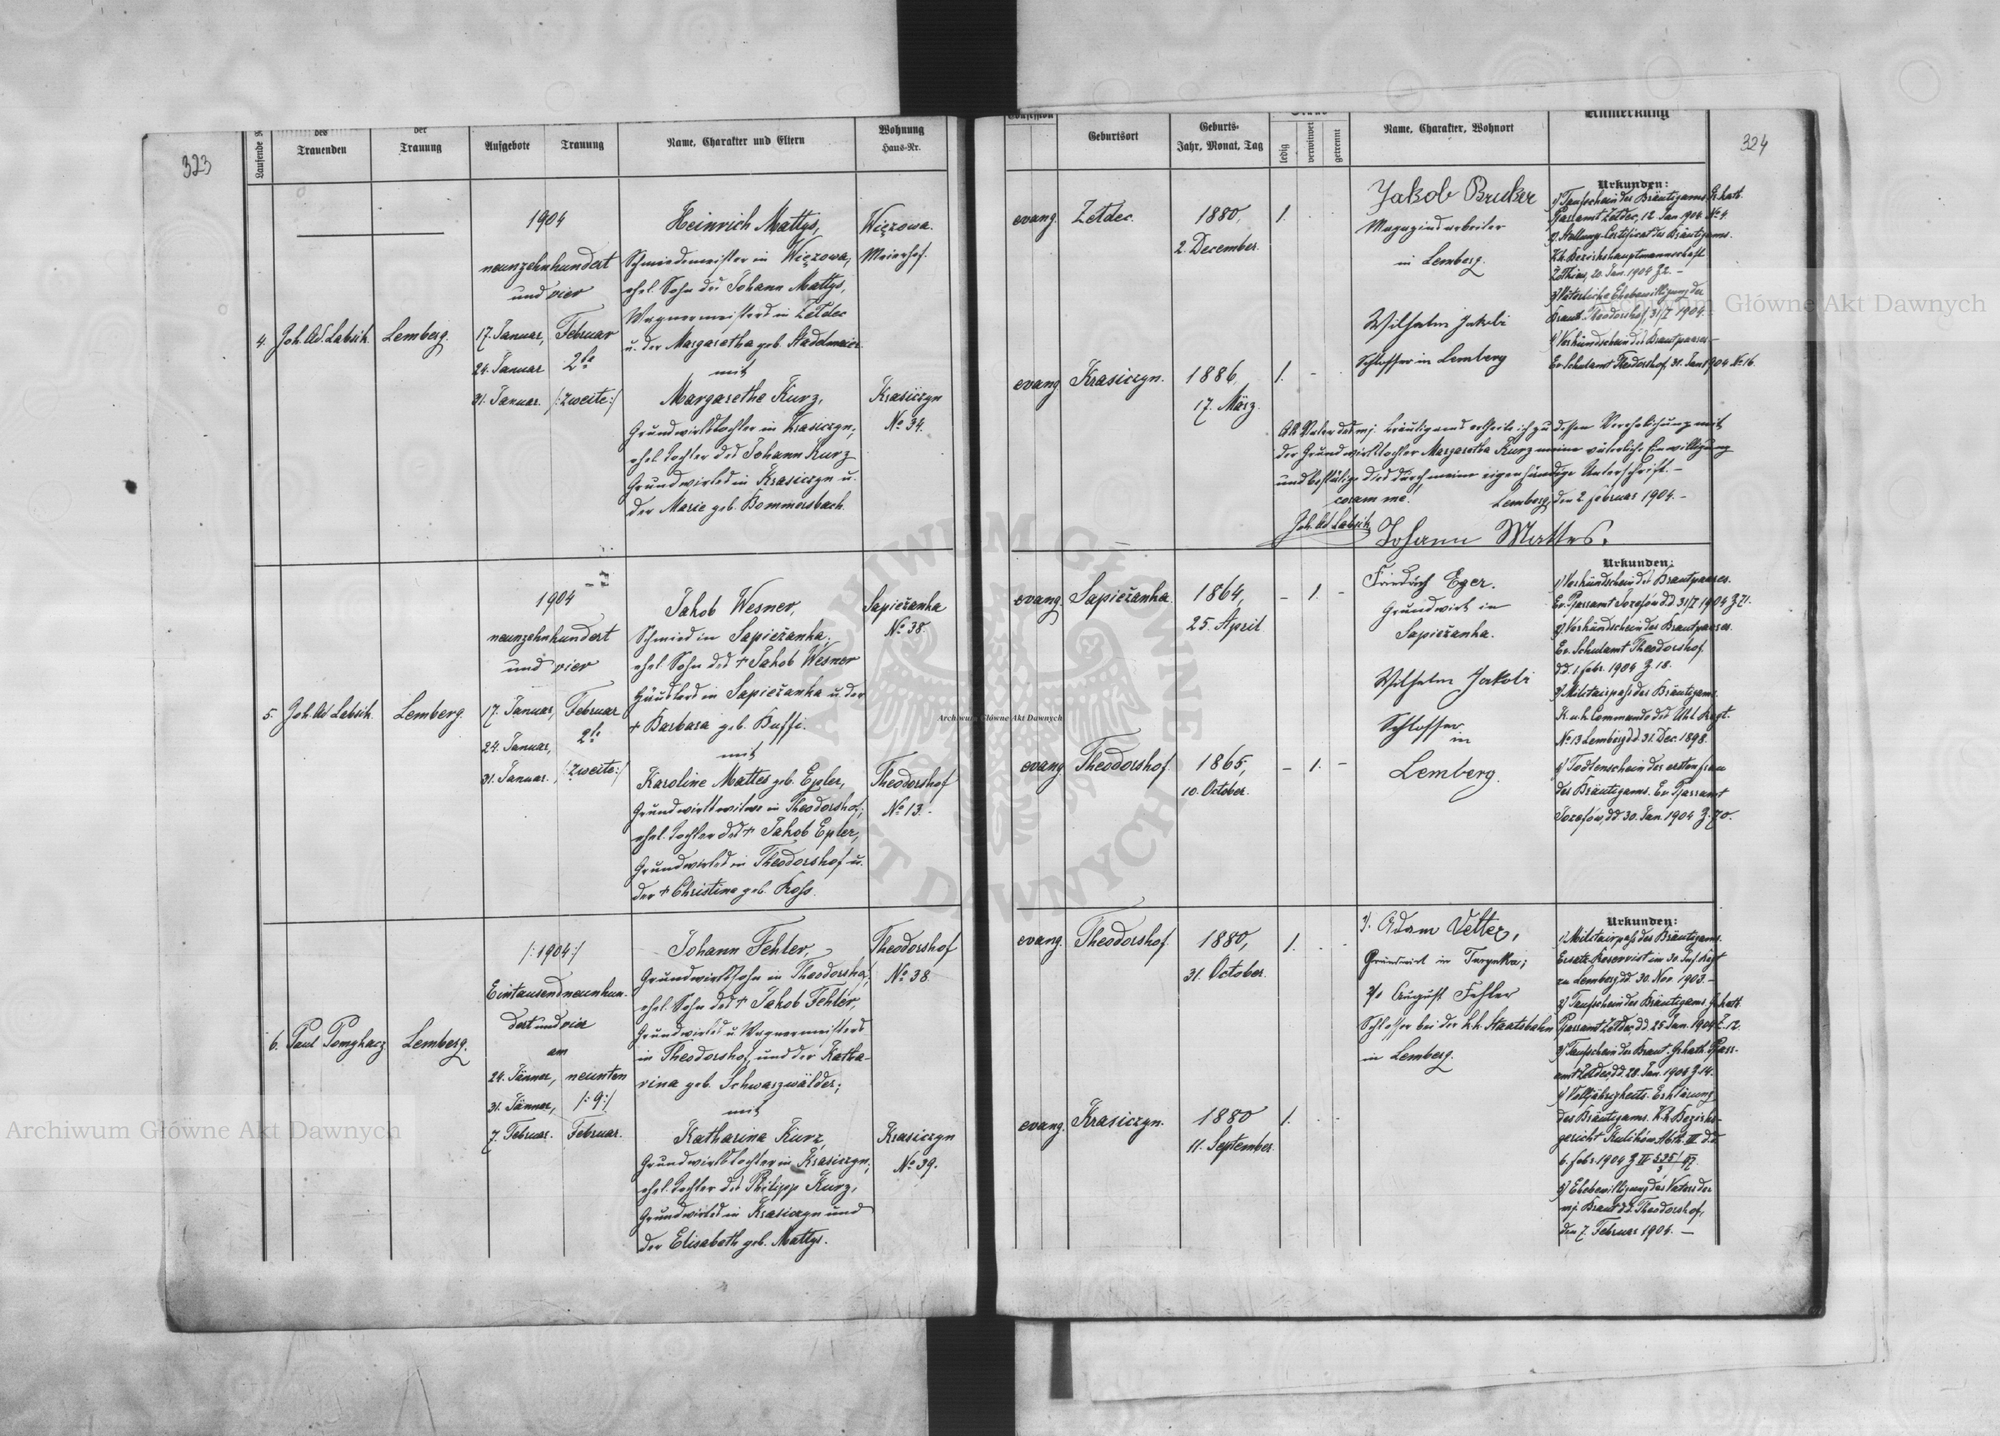 323
Laufende N
des
Trauenden
der
Trauung
Aufgebote
Trauung
Name, Charakter und Eltern
Wohnung
Haus-Nr.
4.
Joh. Ad. Labsik.
Lemberg.
1904
neunzehnhundert
und vier
17. Januar,
24. Januar
31. Januar.
Februar
2te
/:zweite:/
Heinrich Mattys,
Schmiedemeister in Więzowa,
ehel. Sohn des Johann Mattys,
Wagnermeisters in Żełdec
u. der Margaretha geb. Stadelmaier
mit
Margarethe Kurz,
Grundwirtstochter in Krasiczyn,
ehel. Tochter des Johann Kurz
Grundwirtes in Krasiczyn u.
der Marie geb. Bommersbach.
Więzowa.
Meierhof.
Krasiczyn
No 34.
5.
Joh. Ad. Labsik.
Lemberg.
1904
neunzehnhundert
und vier
17. Januar,
24. Januar,
31. Januar.
Februar
2te
/:zweite:/
Jakob Wesner,
Schmied in Sapieżanka,
ehel. Sohn des + Jakob Wesner
in Sapieżanka u. der
+ Barbara geb. Buffi.
mit
Karoline Mattes geb. Epler,
Grundwirtswitwe in Theodorshof,
ehel. Tochter des + Jakob Epler,
Grundwirtes in Theodorshof u.
der + Christine geb. Koss.
Sapieżanka
No 38.
Theodorshof
No 13.
6.
Paul Pomykacz
Lemberg.
/:1904:/
Eintausendneunhun-
dert und vier
am
24. Jänner,
31. Jänner,
7. Februar.
neunten
/:9:/
Februar.
Johann Fehler,
Grundwirtssohn in Theodorshof,
ehel. Sohn des + Jakob Fehler,
Grundwirtes u. Wagnermeisters
in Theodorshof, und der Katha-
rina geb. Schwarzwälder;
mit
Katharina Kurz,
Grundwirtstochter in Krasiczyn,
ehel. Tochter des Philipp Kurz,
Grundwirtes in Krasiczyn und
der Elisabeth geb. Mattys.
Theodorshof
No 38
Krasiczyn
No 39.
324
Confession
Geburtsort
Geburts-
Jahr, Monat, Tag
ledig
verwitwet
getrennt
Name, Charakter, Wohnort
Anmerkung
evang.
Żełdec.
1880,
2. December.
1.
Jakob Bruker
Magazinsarbeiter
in Lemberg.
Wilhelm Jakobi
Schlosser in Lemberg
evang.
Krasiczyn.
1886,
17. März.
1.
Urkunden:
1) Taufschein des Bräutigams. Gr. kath.
Pfarramt Żełdec, 12. Jan. 904. No 4.
2) Stellungs-Certificat des Bräutigams.
K.k. Bezirkshauptmannschaft
Żółkiew, 20. Jan. 1904 Z 2. –
3) Väterliche Ehebewilligung der
Braut. Theodorshof, 31/I 1904.
4) Verkündschein des Brautpaares –
Ev. Schulamt Theodorshof. 31. Jan. 1904. No 16.
Als Vater des mj. Bräutigams erteile ich zu dessen Verehelichung mit
der Grundwirtstochter Margaretha Kurz meine väterliche Einwilligung
und bestätige dies durch meine eigenhändige Unterschrift. –
coram me:
Lemberg, den 2. Februar 1904. –
Joh. Ad. Labsik
Johann Mattes.
evang.
Sapieżanka.
1864,
25. April
– 1. –
Friedrich Eger.
Grundwirt in
Sapieżanka.
Wilhelm Jakobi
Schlosser
in
Lemberg.
evang.
Theodorshof.
1865,
10. October.
– 1. –
Urkunden:
1) Verkündschein des Brautpaares.
Ev. Pfarramt Józefów dd 31/I 1904 Z 71.
2) Verkündschein des Brautpaares.
Ev. Schulamt Theodorshof
dd. 1. Febr. 1904 Z 18.
3) Militairpass des Bräutigams.
K. u. k. Commando des Uhl. Regt.
No 13 Lemberg dd. 31. Dec. 1898.
4) Todtenschein der ersten Frau
des Bräutigams. Ev. Pfarramt
Józefów, dd. 30. Jan. 1904 Z. 70.
evang.
Theodorshof.
1880,
31. October.
1.
1). Adam Vetter,
Grundwirt in Turynka;
2). August Fehler
Schlosser bei der k.k. Staatsbahn
in Lemberg.
evang.
Krasiczyn.
1880
11. September.
1.
Urkunden:
1) Militairpass des Bräutigams.
Ersatz-Reservist im 30. Inf. Regt.
zu Lemberg dd. 30. Nov. 1903. –
2) Taufschein des Bräutigams. Gr. kath.
Pfarramt Żełdec, dd. 25. Jan. 1904 Z. 12.
3) Taufschein der Braut. Gr. kath. Pfarr-
amt Żełdec, dd. 28. Jan. 1904 Z. 14.
4) Volljährigkeits-Erklärung
des Bräutigams. K.k. Bezirks-
gericht Kulików Abth. III dd.
6. Febr. 1904
5) Ehebewilligung des Vaters der
mj. Braut dd. Theodorshof,
den 7. Februar 1904. –
Archiwum Główne Akt Dawnych
Archiwum Główne Akt Dawnych
Archiwum Główne Akt Dawnych
ARCHIWUM GŁÓWNE
AKT DAWNYCH